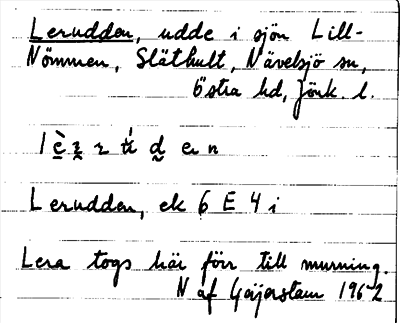 Lerudden, udde i sjön Lill-
Nömmen, Släthult, Nävelsjö sn,
Östra hd, Jönk. l.
Lerudden, ek 6 E 4 i
Lera togs här förr till murning.
N af Geijerstam 1962